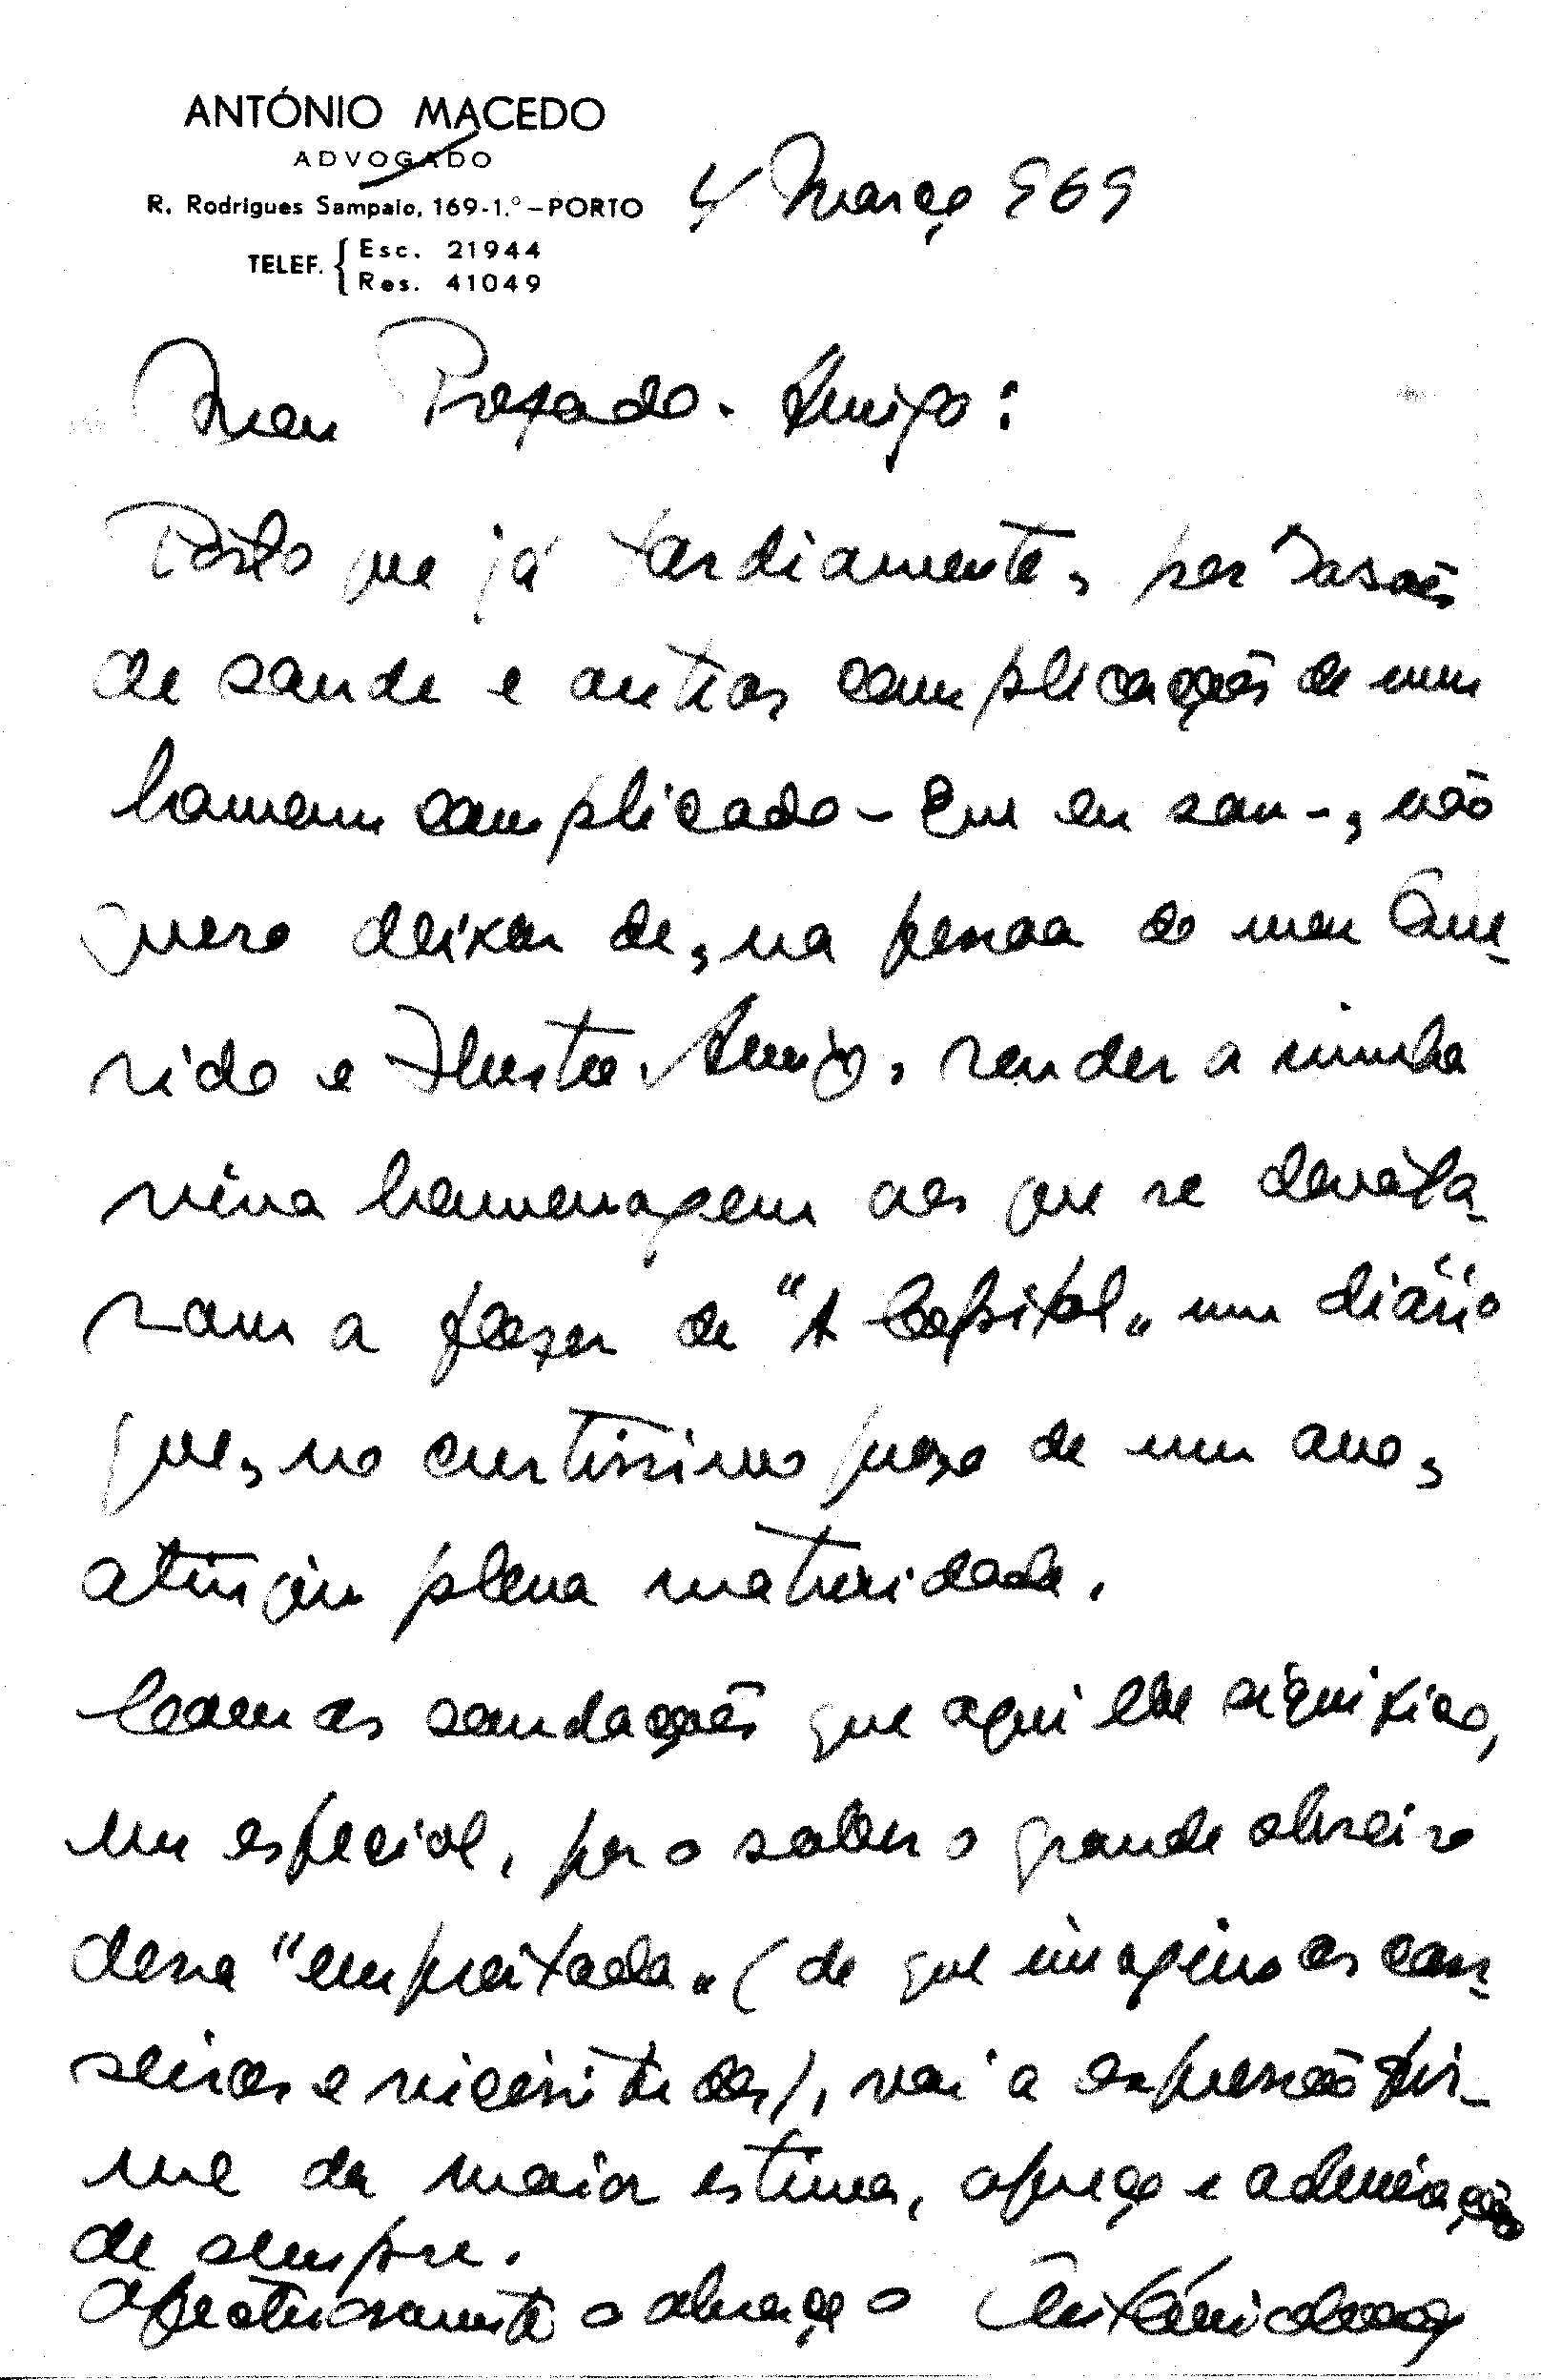 ANTÓNIO MACEDO
ADVOGADO
R. Rodrigues Sampaio, 169-1.º - PORTO
4 Março 969
TELEF. { Esc. 21944
Res. 41049
Meu Prezado Amigo:
Posto que já tardiamente, por rasões
de saude e outras complicações de um
homem complicado - que eu sou -, não
quero deixar de, na pessoa do meu Que-
rido e Ilustre Amigo, render a minha
viva homenagem aos que se devota-
ram a fazer de "A Capital" um diário
que, no curtissimo prazo de um ano,
atingiu plena maturidade.
Com as saudações que aqui lhe significo,
em especial, por o saber o grande obreiro
dessa "empreitada" (de que imagino as can-
seiras e vicissitudes), vai a expressão fir-
me da maior estima, apreço e admiração
de sempre.
Afectuosamente o abraça o António Macedo